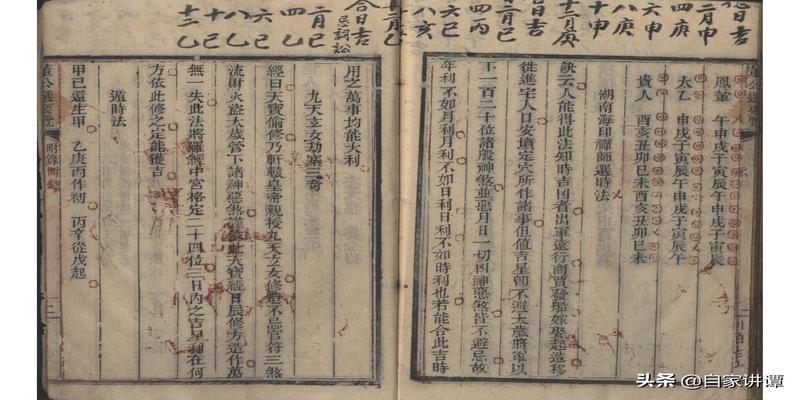 日吉
二月申
四庚
六申
八庚
十申
十二月庚
日吉
四丙
六巳
八亥
鳳輦 午申戌子寅辰午申戌子寅辰
太乙 申戌子寅辰午申戌子寅辰午
貴人 酉亥丑卯巳未酉亥丑卯巳未
湖南海印禪師選時法
訣云人能得此法知時吉凶者出軍遠行商賈發船嫁娶起造移
徙進宅人口安墳定穴所作諸事但值吉星卽不避太歲將軍以
下一百二十位諸殷神煞並惡月日一切凶神惡煞皆不避忌故
年利不如月利月利不如日利日利不如時利也若能合此吉時
合日吉
忌詞訟
二月巳
四乙
六巳
八乙
十巳
十二乙
用之萬事均能大利
九天玄女劫寨三奇
經曰天寶偷修乃軒轅皇帝親授九天玄女修造不忌官符三煞
流財火盗太歲管下諸神惡煞謹依此天寶經日辰修方造作萬
無一失此法將羅經中宮格定二十四位三日內之吉星到在何
方依此修之定能獲吉
遁時法
甲己還生甲 乙庚丙作初 丙辛從戊起
董公選要覽 附錄
头条 @自家讲谭